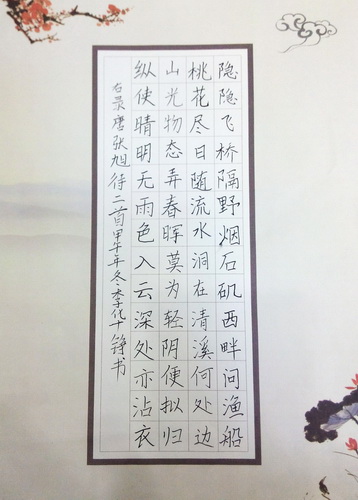 隐隐飞桥隔野烟石矶西畔问渔船
桃花尽日随流水洞在清溪何处边
山光物态弄春晖莫为轻阴便拟归
纵使晴明无雨色入云深处亦沾衣
右录唐张旭诗二首甲午年冬李化十铮书